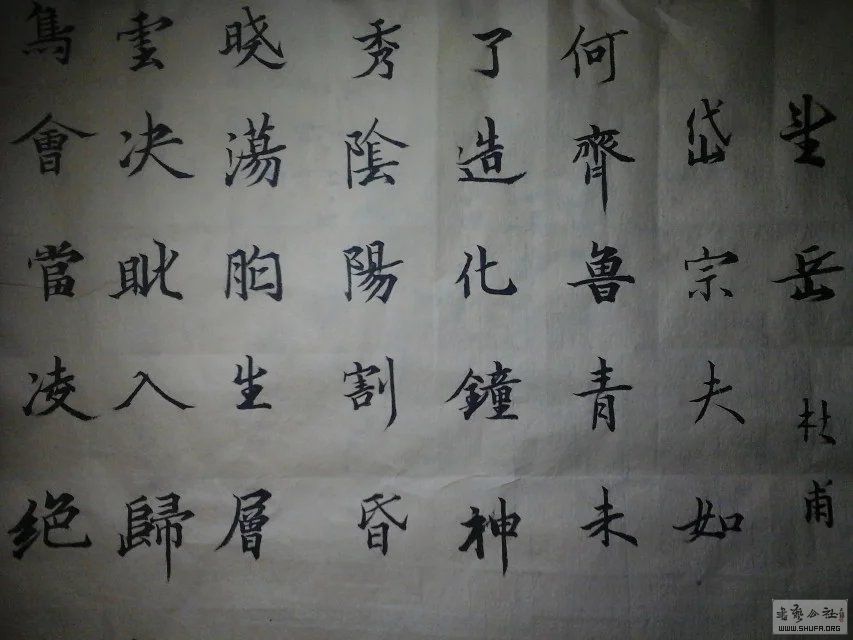 望岳 杜甫
岱宗夫如
何齊魯青未
了造化鐘神
秀陰陽割昏
晓蕩胸生層
雲决眦入歸
鳥會當凌绝
书艺公社
WWW.SHUFA.ORG